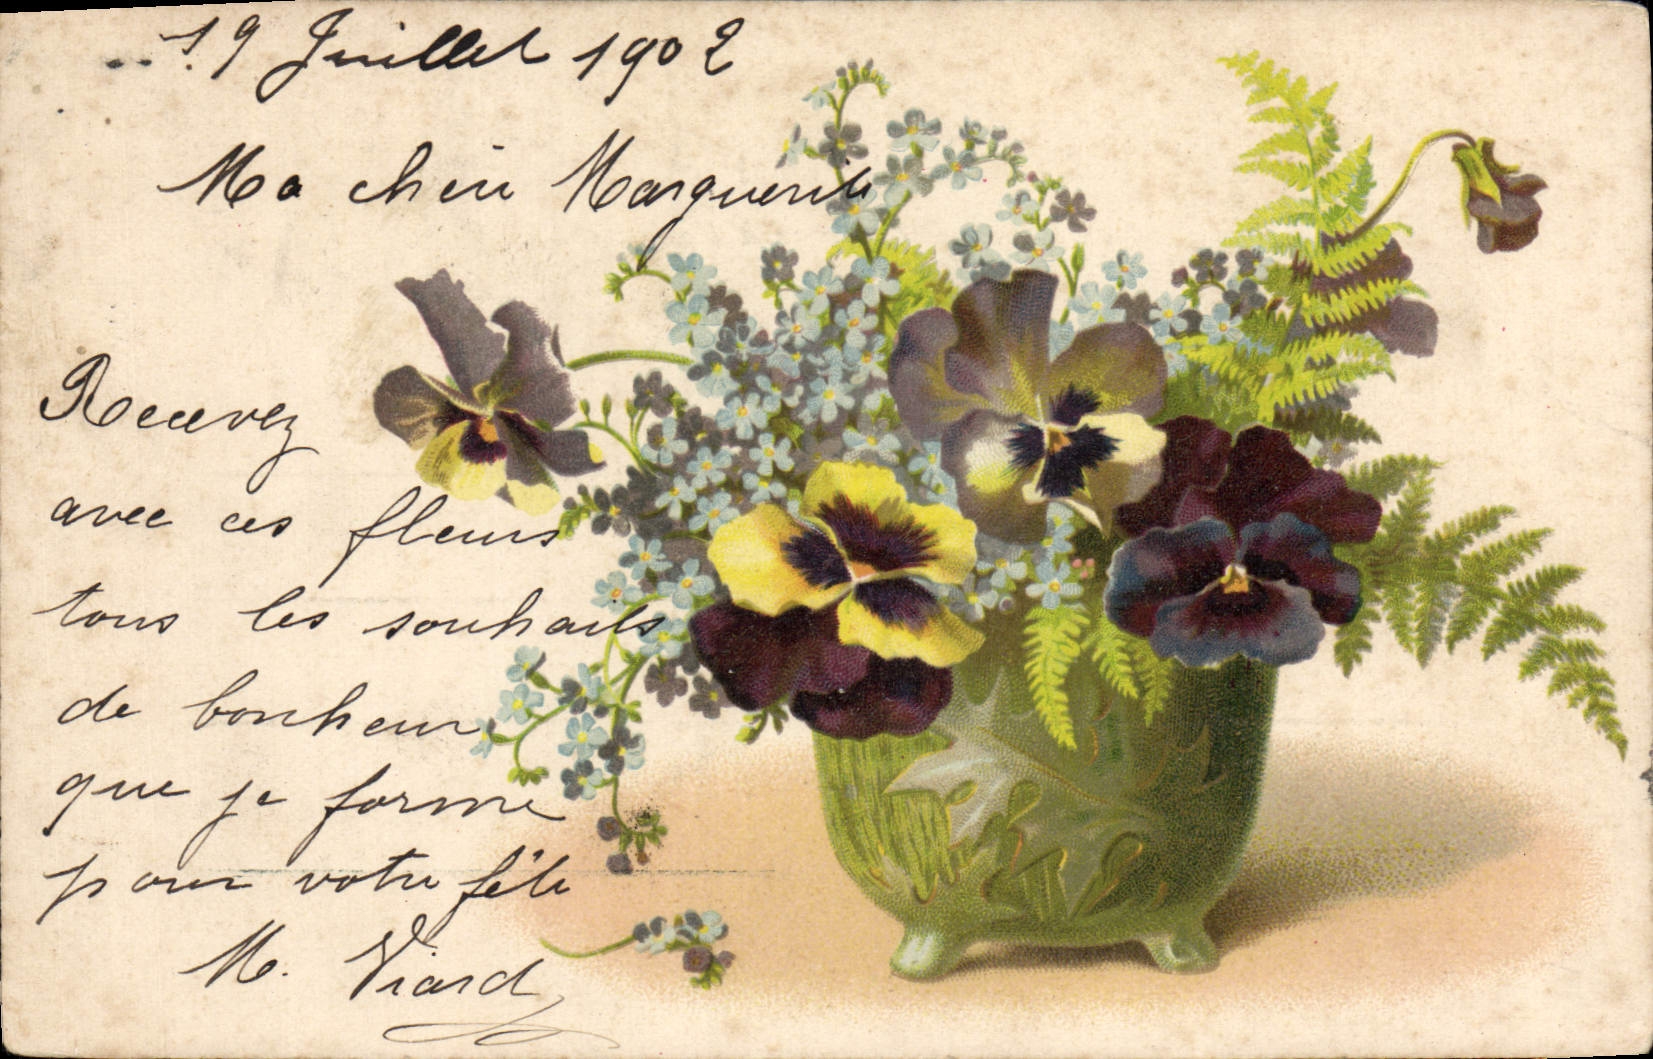 19 Juillet 1902
Ma chère Marguerite
Recevez
avec ces fleurs
tous les souhaits
de bonheur
que je forme
pour votre fête
M. Viard